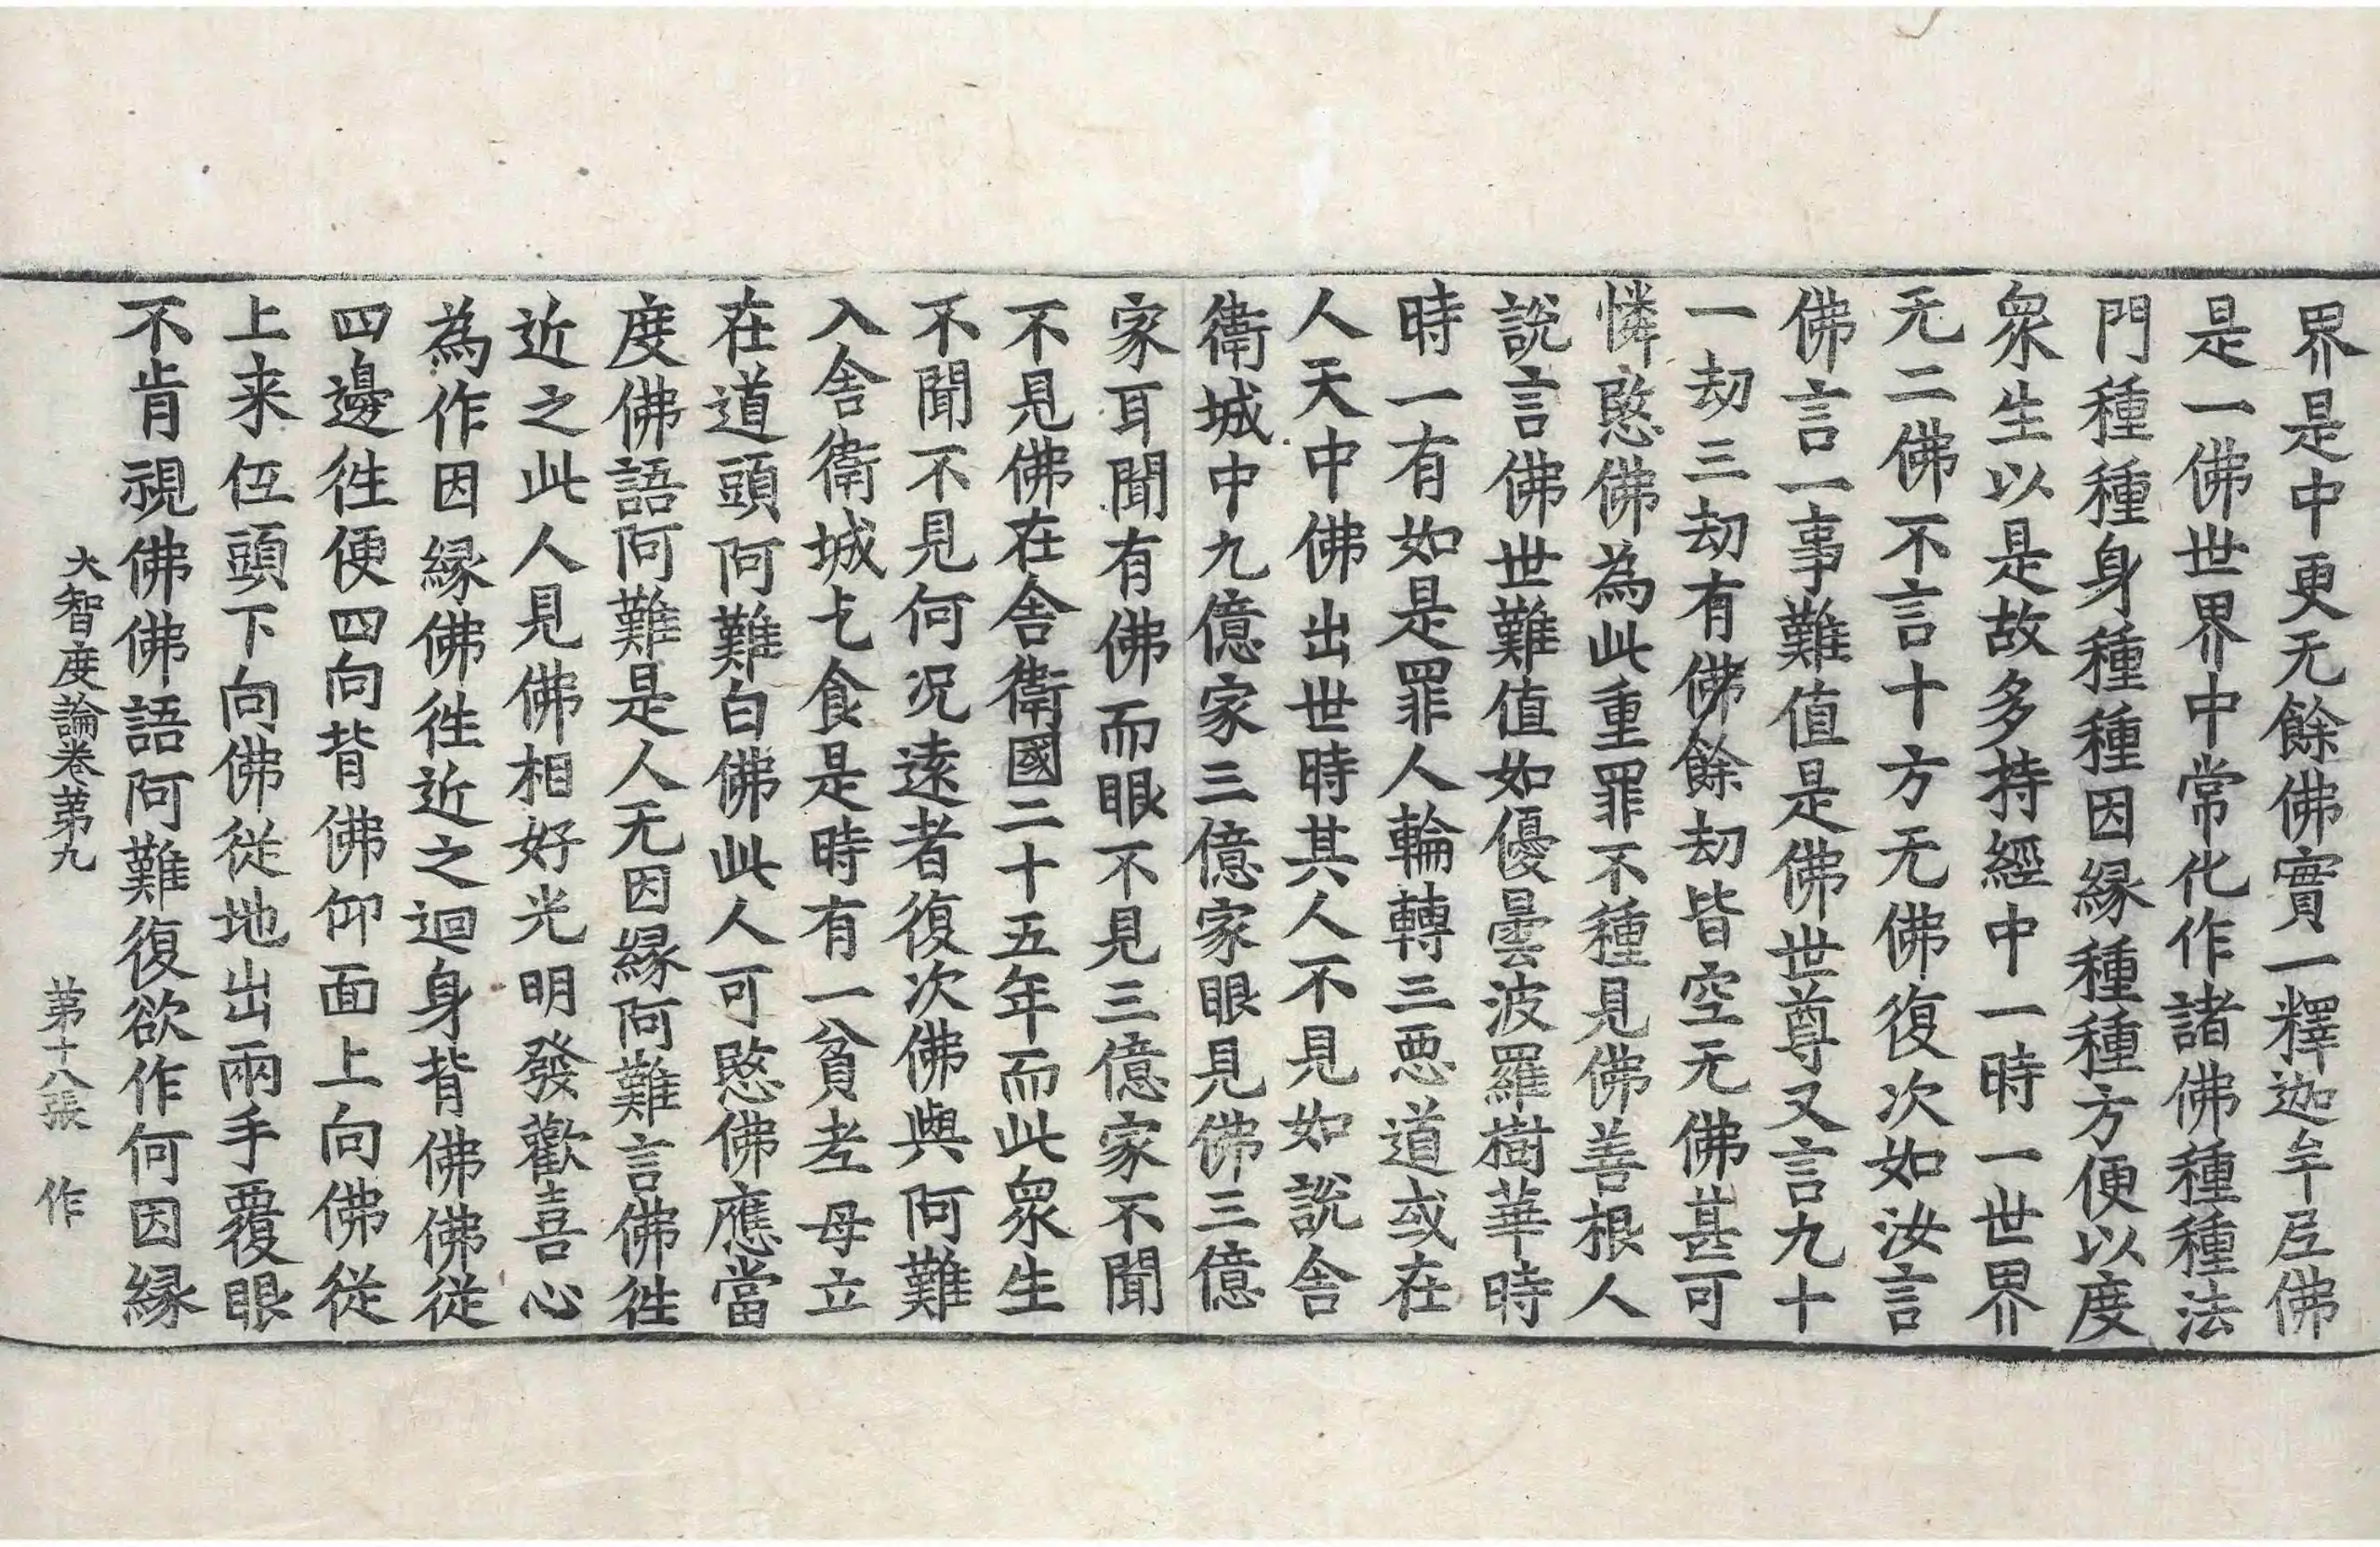 界是中更无餘佛實一釋迦牟𡰱佛
是一佛世界中常化作諸佛種種法
門種種身種種因緣種種方便以度
眾生以是故多持經中一時一世界
无二佛不言十方无佛復次如汝言
佛言一事難值是佛世尊又言九十
一劫三劫有佛餘劫皆空无佛甚可
憐愍佛為此重罪不種見佛善根人
說言佛世難值如優曇波羅樹華時
時一有如是罪人輪轉三惡道或在
人天中佛出世時其人不見如說舍
衛城中九億家三億家眼見佛三億
家耳聞有佛而眼不見三億家不聞
不見佛在舍衛國二十五年而此眾生
不聞不見何況遠者復次佛與阿難
入舍衛城乞食是時有一貧老母立
在道頭阿難白佛此人可愍佛應當
度佛語阿難是人无因緣阿難言佛往
近之此人見佛相好光明發歡喜心
為作因緣佛往近之迴身背佛佛從
四邊往便四向背佛仰面上向佛從
上来低頭下向佛從地出兩手覆眼
不肯視佛佛語阿難復欲作何因緣
大智度論卷第九 第十八張 作